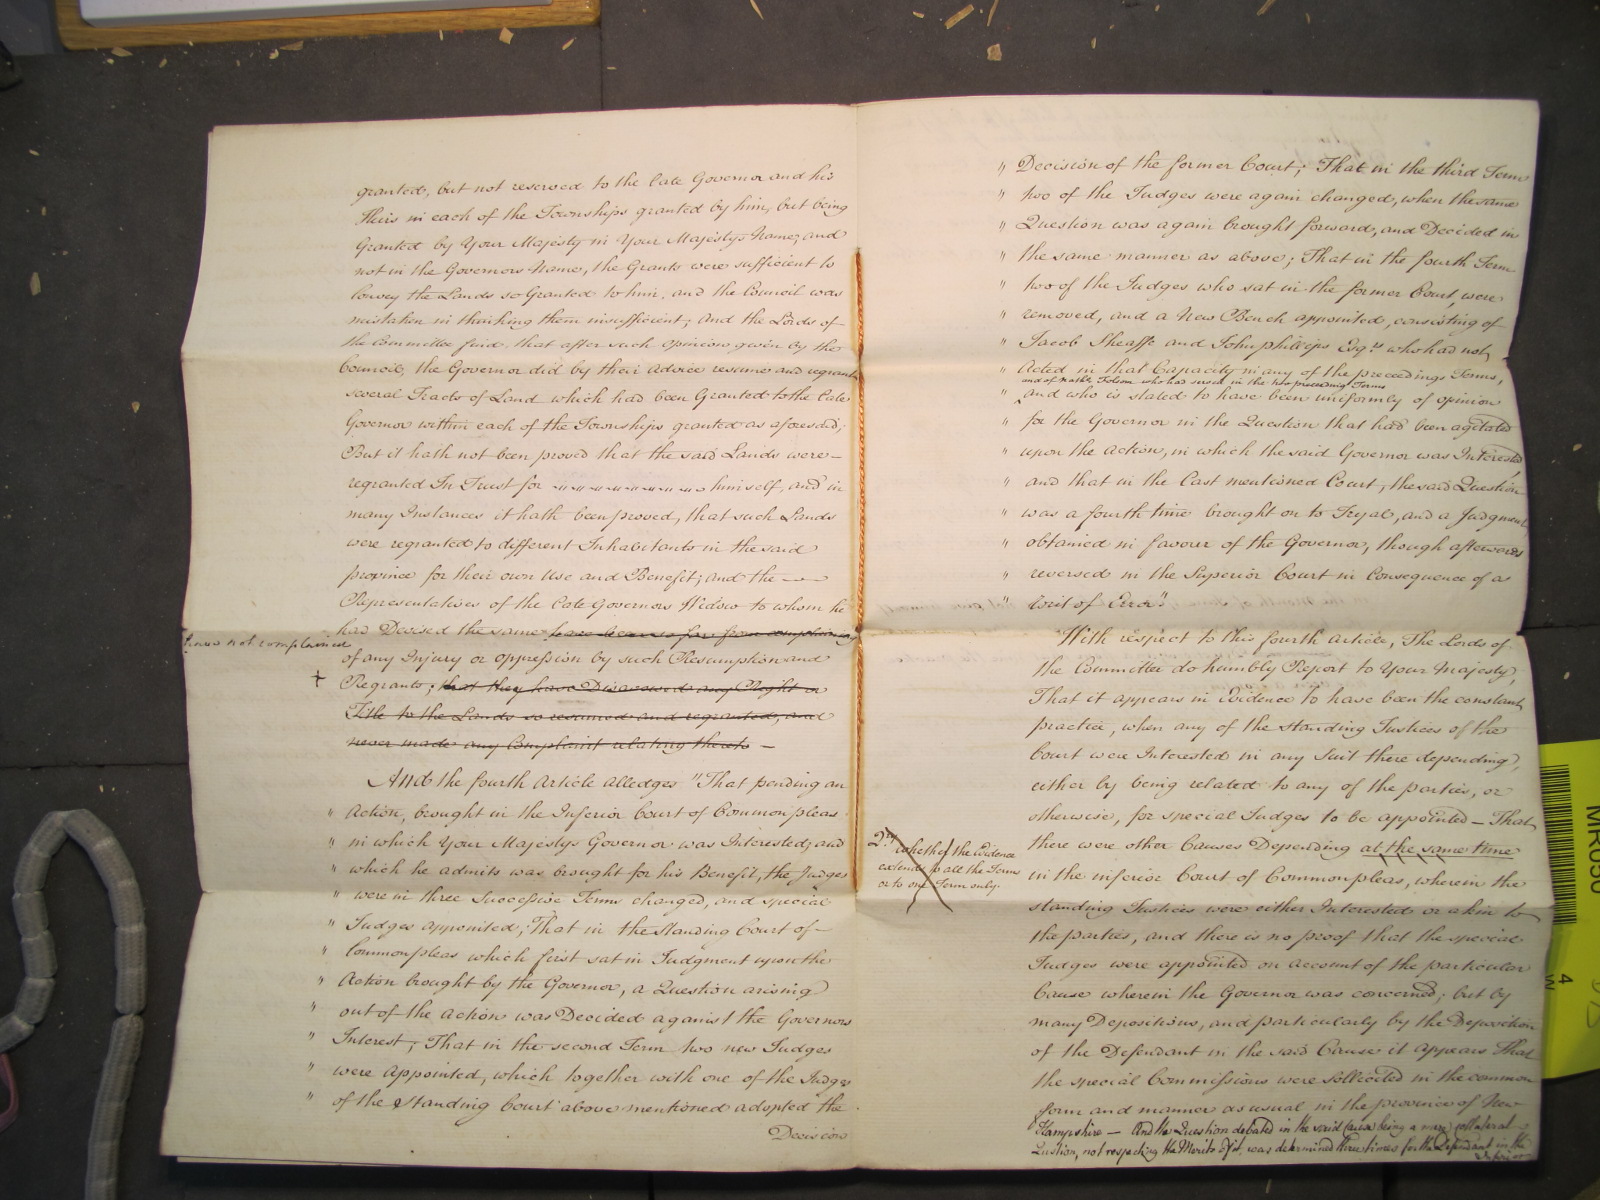 granted, but not reserved to the late Governor and his
Heirs in each of the Townships granted by him, but being
Granted by Your Majesty in Your Majestys Name; and
not in the Governors Name, the Grants were sufficient to
Convey the Lands so Granted to him, and the Council was
mistaken in thinking them insufficient; And the Lords of
the Committee find, that after such opinion given by the
Council, the Governor did by their Advice resume and regrant
several Tracts of Land which had been Granted to the late
Governor within each of the Townships granted as aforesaid;
But it hath not been proved that the said Lands were
regranted In Trust for himself, and in
many Instances it hath been proved, that such Lands
were regranted to different Inhabitants in the said
province for their own Use and Benefit; and the
Representatives of the late Governors Widow to whom he
had Devised the same have been so far from complaining
have not complained
of any Injury or oppression by such Resumption and
+ Regrants; that they have Disavowed any Right or
Title to the Lands so resumed and regranted, and
never made any Complaint relating thereto —
And the fourth Article alledges "That pending an
" Action, brought in the Inferior Court of Common pleas
" in which Your Majestys Governor was Interested, and
" which he admits was brought for his Benefit, the Judges
" were in three Successive Terms changed, and special
" Judges appointed; That in the Standing Court of
" Common pleas which first sat in Judgment upon the
" Action brought by the Governor, a Question arising
" out of the Action was Decided against the Governors
" Interest; That in the second Term two new Judges
" were appointed, which together with one of the Judges
" of the Standing Court above mentioned adopted the
Decision
" Decision of the former Court; That in the third Term
" two of the Judges were again changed, when the same
" Question was again brought forward, and Decided in
" the same manner as above; That in the fourth Term
" two of the Judges who sat in the former Court, were
" removed, and a New Bench appointed, consisting of
" Jacob Sheaffe and John phillips Esqrs. who had not
" Acted in that Capacity in any of the preceedings Terms,
and of Nathl. Folsom who had served in the two preceeding Terms
" and who is stated to have been uniformly of opinion
" for the Governor in the Question that had been agitated
" upon the Action, in which the said Governor was Interested
" and that in the last mentioned Court, the said Question
" was a fourth time brought on to Tryal, and a Judgment
" obtained in favour of the Governor, though afterwards
" reversed in the Superior Court in Consequence of a
" Writ of Error"
With respect to this fourth Article, The Lords of
the Committee do humbly Report to Your Majesty,
That it appears in Evidence to have been the constant
practice, when any of the standing Justices of the
Court were Interested in any Suit there depending,
either by being related to any of the parties, or
otherwise, for special Judges to be appointed — That
there were other Causes Depending at the same time
Qry whether the Evidence
extends to all the Terms
or to one Term only.
in the inferior Court of Common pleas, wherein the
standing Justices were either Interested or a kin to
the parties, and there is no proof that the special
Judges were appointed on Account of the particular
Cause wherein the Governor was concerned; but by
many Depositions, and particularly by the Deposition
of the Defendant in the said Cause it appears That
the special Commissions were sollicited in the common
form and manner as usual in the province of New
Hampshire — And the Question debated in the said Cause being a mere collateral
Question, not respecting the Merits of it, was determined three times for the Defendant in the
Inferior
MR050
4